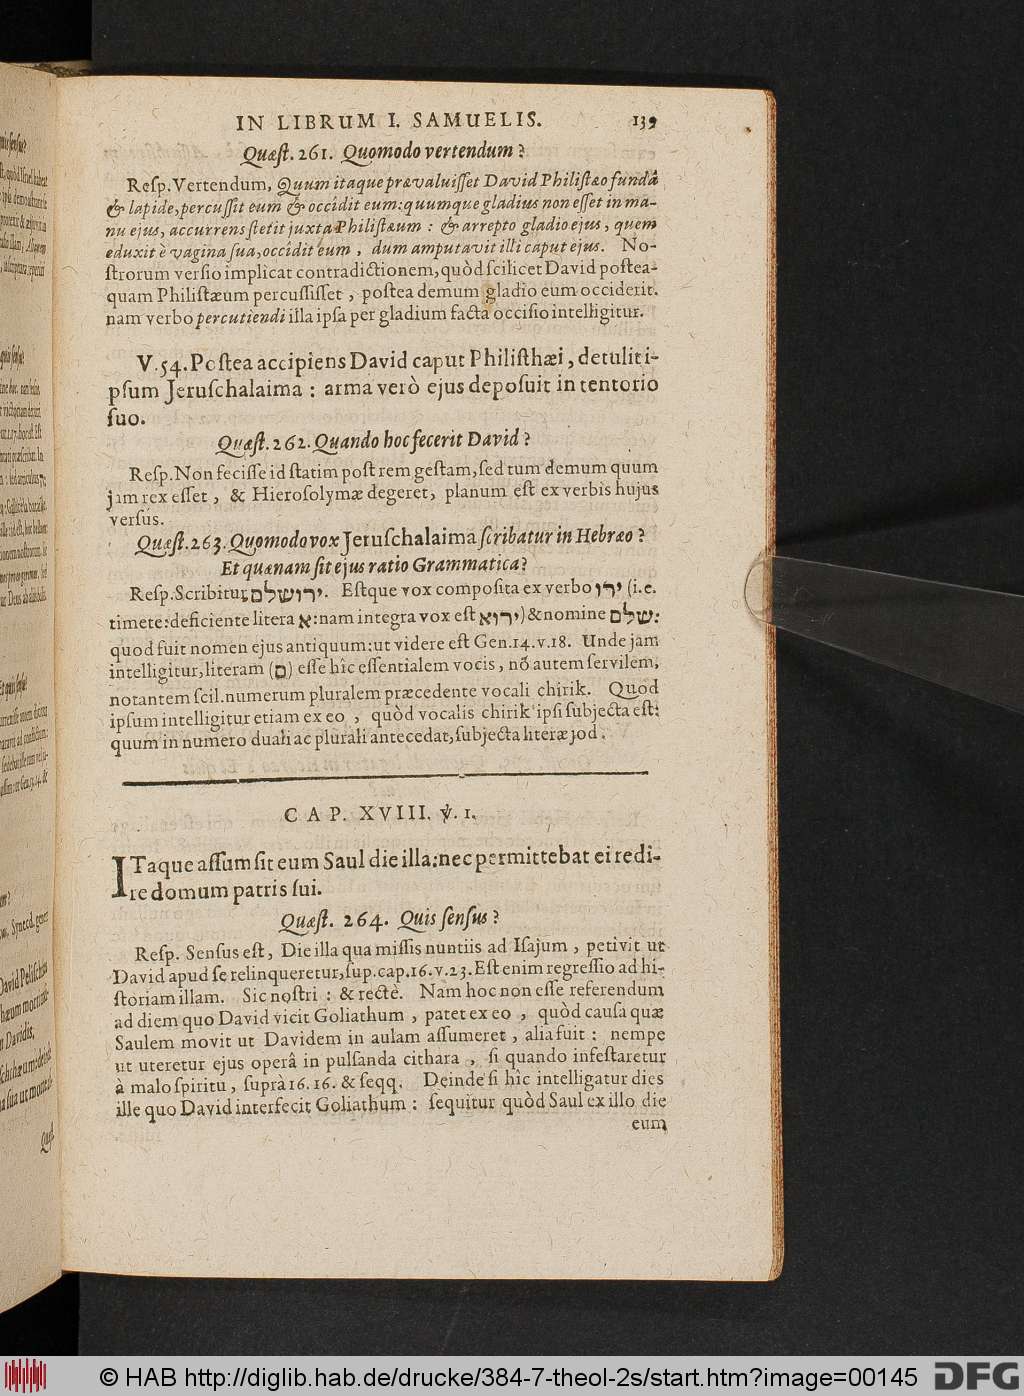 IN LIBRUM I. SAMUELIS. 139
Quæst. 261. Quomodo vertendum?
Resp. Vertendum, Quum itaque prævaluisset David Philistæo fundâ
& lapide, percussit eum & occîdit eum: quumque gladius non esset in ma-
nu ejus, accurrens stetit juxta Philistæum: & arrepto gladio ejus, quem
eduxit è vagina sua, occîdit eum, dum amputavit illi caput ejus. No-
strorum versio implicat contradictionem, quòd scilicet David postea-
quam Philistæum percussisset, postea demum gladio eum occiderit.
nam verbo percutiendi illa ipsa per gladium facta occisio intelligitur.
V. 54. Postea accipiens David caput Philisthæi, detulit i-
psum Jeruschalaima: arma verò ejus deposuit in tentorio
suo.
Quæst. 262. Quando hoc fecerit David?
Resp. Non fecisse id statim post rem gestam, sed tum demum quum
jam rex esset, & Hierosolymæ degeret, planum est ex verbis hujus
versus.
Quæst. 263. Quomodo vox Jeruschalaima scribatur in Hebræo?
Et quænam sit ejus ratio Grammatica?
Resp. Scribitur ירושלם. Estque vox composita ex verbo ירו (i.e.
timete: deficiente litera א: nam integra vox est יראו) & nomine שלם:
quod fuit nomen ejus antiquum: ut videre est Gen. 14. v. 18. Unde jam
intelligitur, literam (ם) esse hîc essentialem vocis, nõ autem servilem,
notantem scil. numerum pluralem præcedente vocali chirik. Quod
ipsum intelligitur etiam ex eo, quòd vocalis chirik ipsi subjecta est:
quum in numero duali ac plurali antecedat, subjecta literæ jod.
CAP. XVIII. ℣. 1.
ITaque assumsit eum Saul die illa: nec permittebat ei redi-
re domum patris sui.
Quæst. 264. Quis sensus?
Resp. Sensus est, Die illa qua missis nuntiis ad Isajum, petivit ut
David apud se relinqueretur, sup. cap. 16. v. 23. Est enim regressio ad hi-
storiam illam. Sic nostri: & rectè. Nam hoc non esse referendum
ad diem quo David vicit Goliathum, patet ex eo, quòd causa quæ
Saulem movit ut Davidem in aulam assumeret, alia fuit: nempe
ut uteretur ejus operâ in pulsanda cithara, si quando infestaretur
à malo spiritu, suprà 16. 16. & seqq. Deinde si hîc intelligatur dies
ille quo David interfecit Goliathum: sequitur quòd Saul ex illo die
eum
© HAB http://diglib.hab.de/drucke/384-7-theol-2s/start.htm?image=00145
DFG